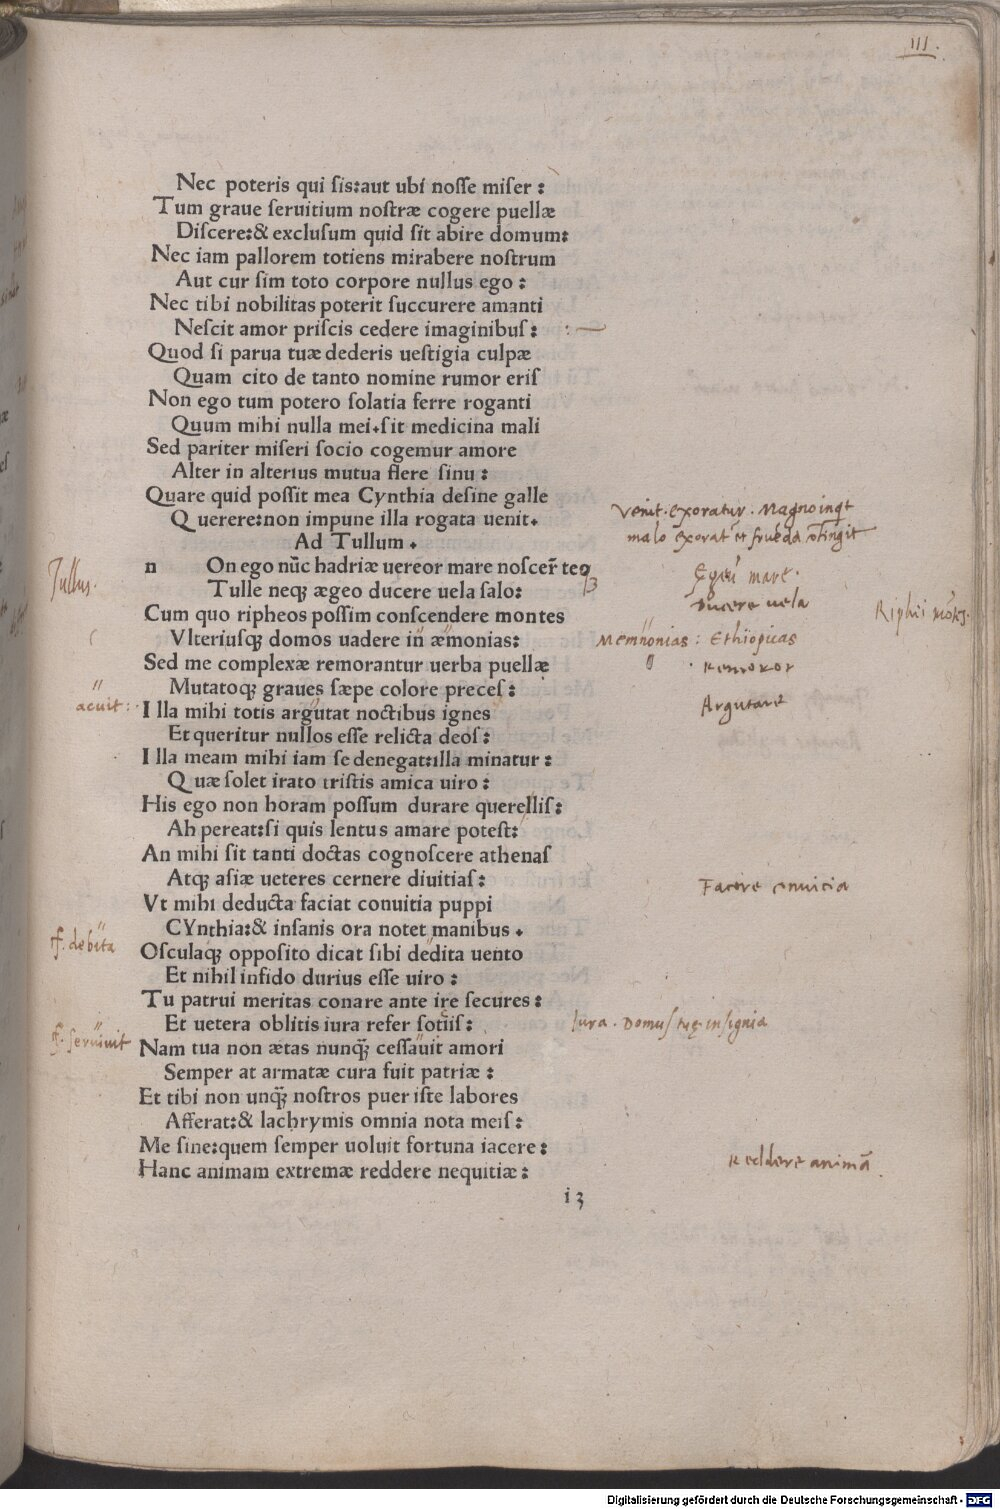 III.
Nec poteris qui ſis:aut ubi noſſe miſer :
Tum graue ſeruitium noſtræ cogere puellæ
Diſcere:& excluſum quid ſit abire domum:
Nec iam pallorem totiens mirabere noſtrum
Aut cur ſim toto corpore nullus ego :
Nec tibi nobilitas poterit ſuccurere amanti
Neſcit amor priſcis cedere imaginibuſ :
Quod ſi parua tuæ dederis ueſtigia culpæ
Quam cito de tanto nomine rumor eriſ
Non ego tum potero ſolatia ferre roganti
Quum mihi nulla mei.ſit medicina mali
Sed pariter miſeri ſocio cogemur amore
Alter in alterius mutua flere ſinu :
Quare quid poſſit mea Cynthia deſine galle
Q uerere:non impune illa rogata uenit.
venit. exoratur. Magno inqt
malo exorat et
Ad Tullum .
Tullus.
n On ego nūc hadriæ uereor mare noſcer̄ teo
mare.
Tulle neqꝫ ægeo ducere uela ſalo:
Ducere uela
Cum quo ripheos poſſim conſcendere montes
Riphii
Vlteriuſqꝫ domos uadere in æmonias:
Memnonias : Ethiopicas
Sed me complexæ remorantur uerba puellæ
Remoror
Mutatoqꝫ graues ſæpe colore preceſ :
acuit :
I lla mihi totis argutat noctibus ignes
Argutare
Et queritur nullos eſſe relicta deoſ :
I lla meam mihi iam ſe denegat:illa minatur :
Q uæ ſolet irato triſtis amica uiro :
His ego non horam poſſum durare querelliſ :
Ah pereat:ſi quis lentus amare poteſt:
An mihi ſit tanti doctas cognoſcere athenaſ
Atqꝫ aſiæ ueteres cernere diuitiaſ :
Facere conuicia
Vt mihi deducta faciat conuitia puppi
CYnthia:& inſanis ora notet manibus .
debita
Oſculaqꝫ oppoſito dicat ſibi dedita uento
Et nihil infido durius eſſe uiro :
Tu patrui meritas conare ante ire ſecures :
Et uetera oblitis iura refer ſotiiſ :
Iura. Domuſ tuę inſignia
ſeruiuit
Nam tua non ætas nunqꝫ̄ ceſſauit amori
Semper at armatæ cura fuit patriæ :
Et tibi non unqꝫ̄ noſtros puer iſte labores
Afferat:& lachrymis omnia nota meiſ :
Me ſine:quem ſemper uoluit fortuna iacere :
Reddere animā
Hanc animam extremæ reddere nequitiæ :
i 3
Digitalisierung gefördert durch die Deutsche Forschungsgemeinschaft - DFG